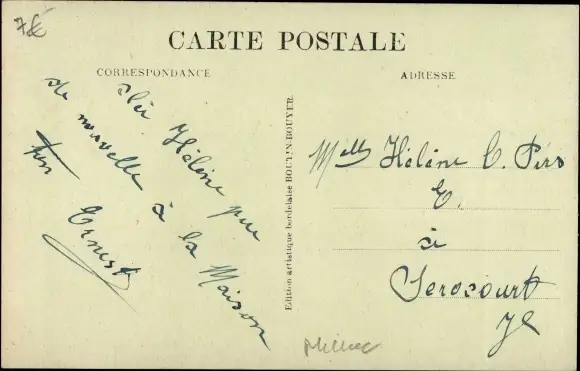 7€
CARTE POSTALE
CORRESPONDANCE
ADRESSE
Hélène pas
de nouvelle à la Maison
ton Ernest
Edition artistique bordelaise BOUTIN-BOUYER
Melle Hélène C.
à
Serocourt